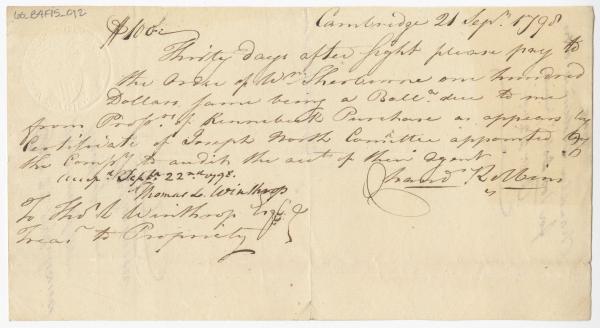 66_B4F15_012
Cambridge 21 Sepr. 1798
$100
Thirty days after sight please pay to
the order of Wm. Sherburne one hundred
Dollars, same being a Balla. due to me
from Propors. of Kennebeck Purchase as appears by
Certificate of Joseph North Committee appointed
the Compy. to audit the acct. of their agent
Septr. 22nd 1798.
Thomas L. Winthrop
Robbins
To Thos. L Winthrop Esqr.
Treasr. to Propriety